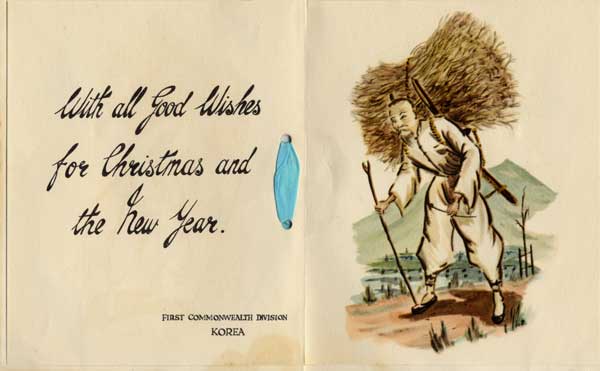 With all Good Wishes
for Christmas and
the New Year.
FIRST COMMONWEALTH DIVISION
KOREA